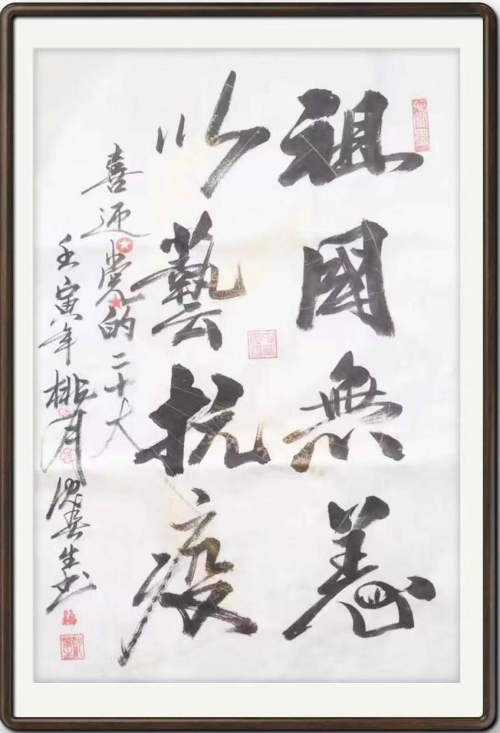 祖國無恙
以藝抗疫
喜迎党的二十大
壬寅年桃月 生书